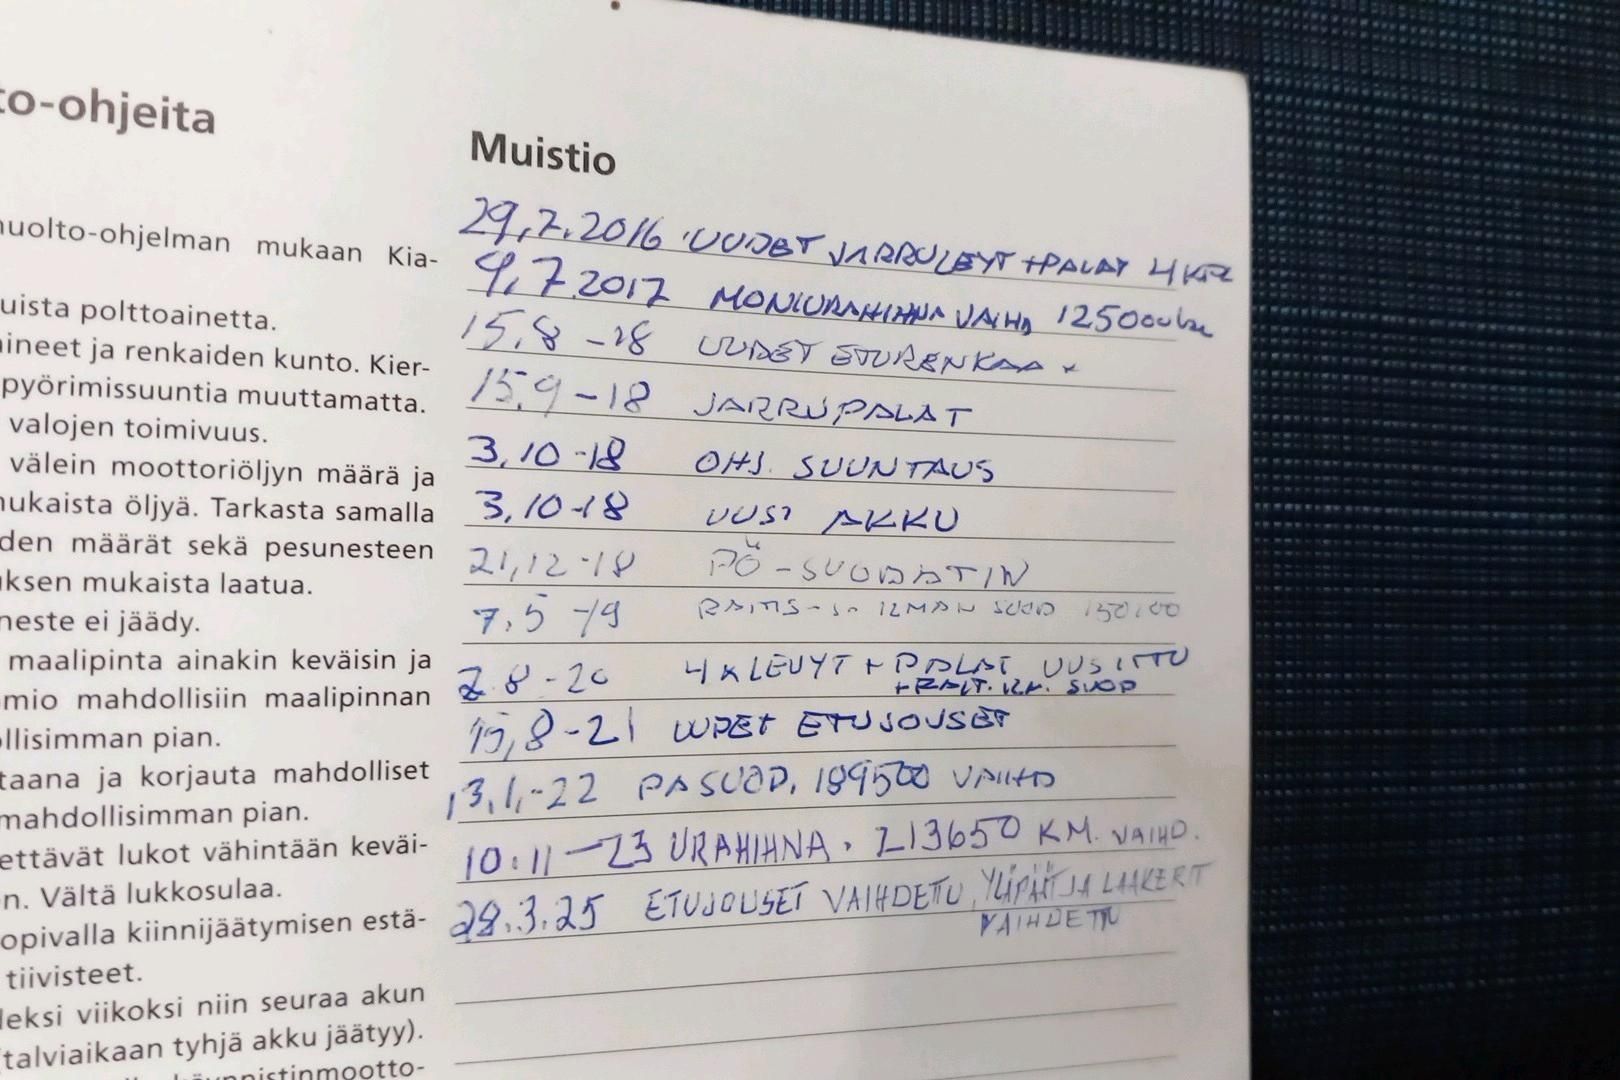 to-ohjeita
uolto-ohjelman mukaan Kia-
uista polttoainetta.
ineet ja renkaiden kunto. Kier-
pyörimissuuntia muuttamatta.
valojen toimivuus.
välein moottoriöljyn määrä ja
mukaista öljyä. Tarkasta samalla
den määrät sekä pesunesteen
uksen mukaista laatua.
neste ei jäädy.
maalipinta ainakin keväisin ja
mio mahdollisiin maalipinnan
ollisimman pian.
taana ja korjauta mahdolliset
mahdollisimman pian.
ettävät lukot vähintään keväi-
n. Vältä lukkosulaa.
opivalla kiinnijäätymisen estä-
tiivisteet.
leksi viikoksi niin seuraa akun
(talviaikaan tyhjä akku jäätyy).
käynnistinmootto-
Muistio
29,7.2016 UUDET JARRULEYT +PALAT 4 KPL
4,7.2017 MONIURAHIHNA VAIHD 125000km
15,8 -18 UUDET ETURENKAA
15,9 -18 JARRUPALAT
3,10 -18 OHJ. SUUNTAUS
3,10-18 UUSI AKKU
21,12-18 PÖ-SUODATIN
7.5 -19 RAITIS- ILMAN SUOD 150100
2.8 -20 4 x LEVYT + PALAT UUSITTU
+RAIT. ILM. SUOD
15,8-21 UUDET ETUJOUSET
13.1,-22 PA SUOD, 189500 VAIHD
10.11-23 URAHIHNA. 213650 KM. VAIHD.
28.3.25 ETUJOUSET VAIHDETTU, YLÄPÄÄT JA LAAKERIT
VAIHDETTU